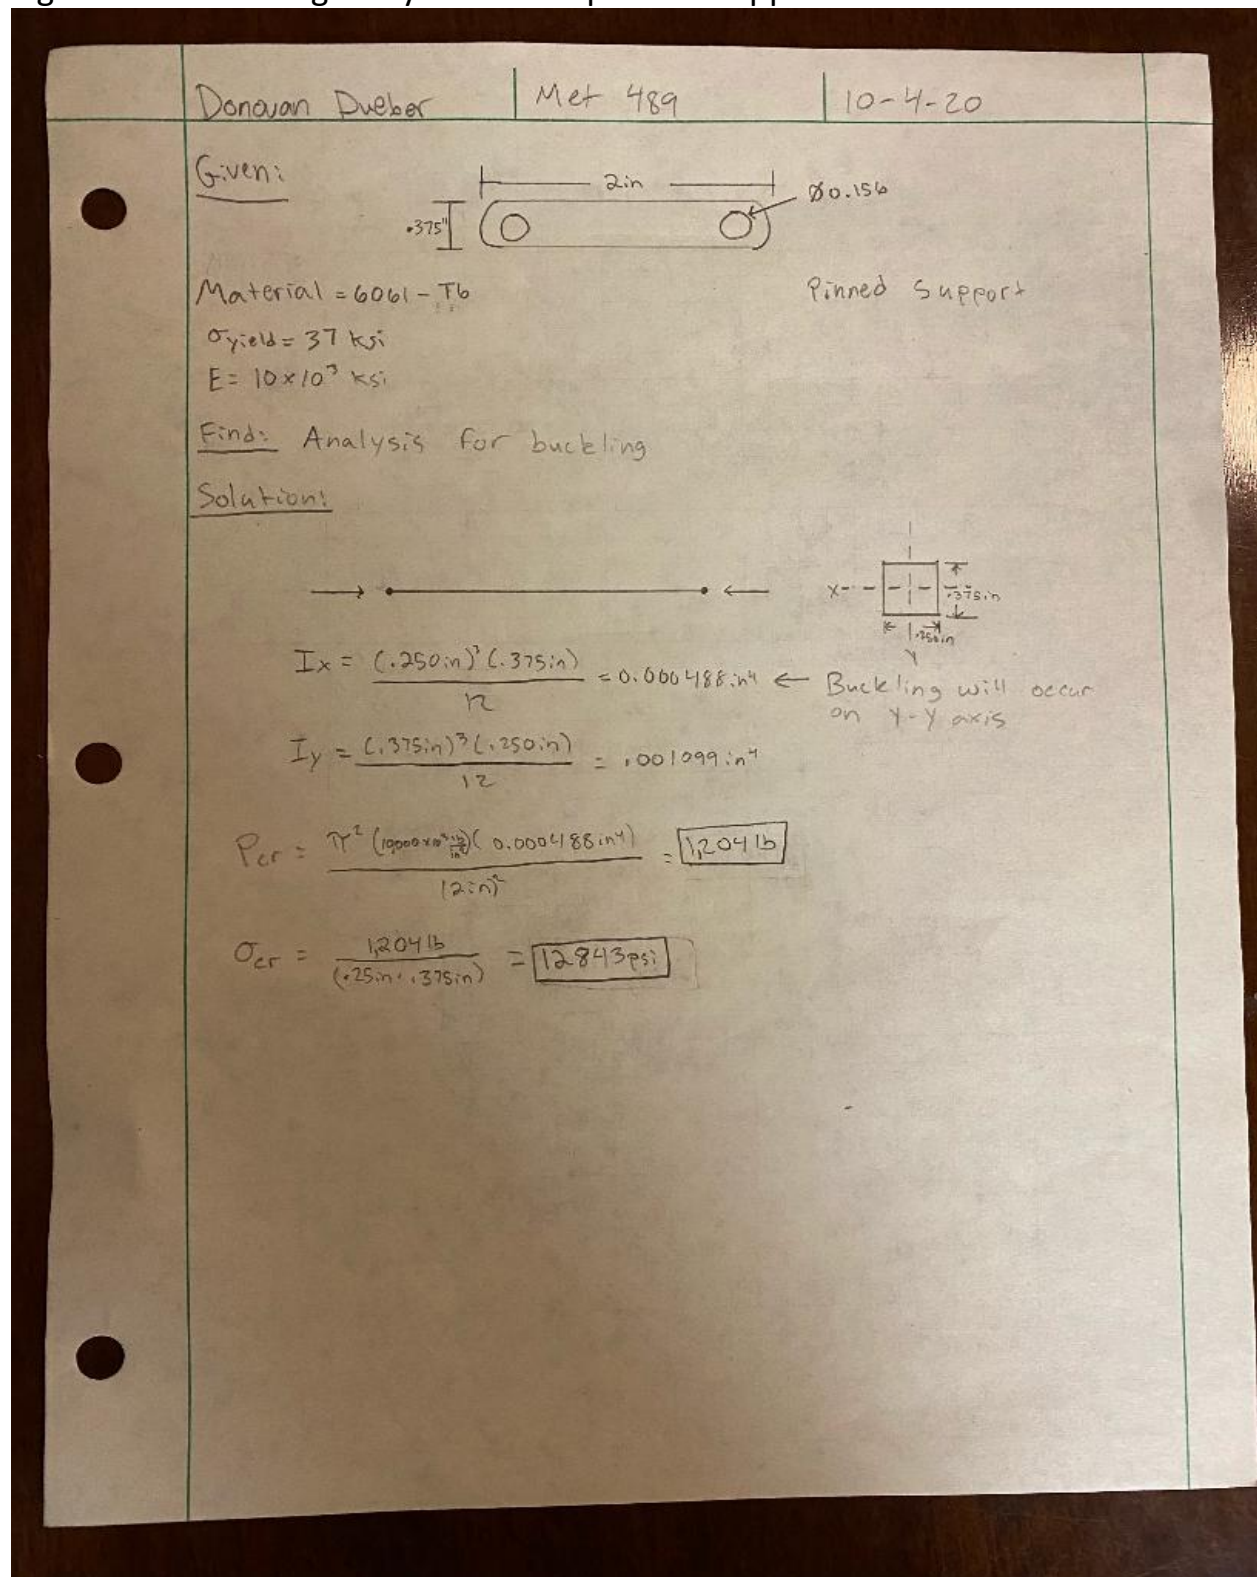 Donovan Dueber | Met 489 | 10-4-20
Given:
2in
Ø0.156
.375"
Material = 6061-T6
Pinned Support
σyield = 37 ksi
E = 10x10³ ksi
Find: Analysis for buckling
Solution:
X
.375in
.250in
Y
Ix = (.250in)³(.375in) / 12 = 0.000488in⁴ ← Buckling will occur
on Y-Y axis
Iy = (.375in)³(.250in) / 12 = .001099in⁴
Pcr = π²(10,000x10³ lb/in²)(0.000488in⁴) / (2in)² = 1,204 lb
σcr = 1,204 lb / (.25in · .375in) = 12843psi